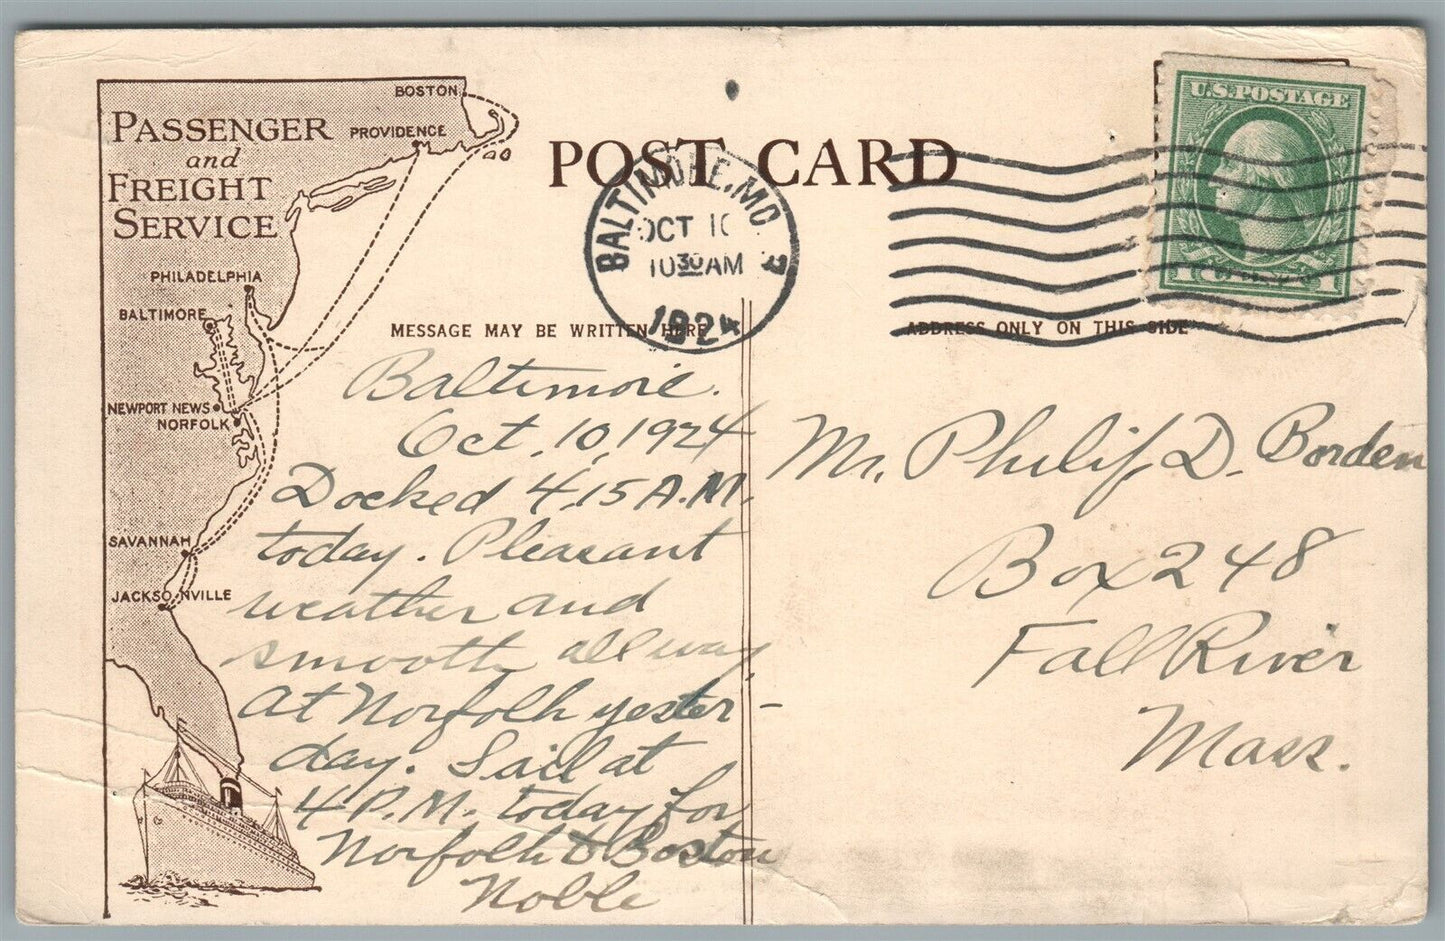 PASSENGER
and
FREIGHT
SERVICE
BOSTON
PROVIDENCE
PHILADELPHIA
BALTIMORE
NEWPORT NEWS
NORFOLK
SAVANNAH
JACKSONVILLE
POST CARD
BALTIMORE, MD.
OCT 10
10 30 AM
1924
U.S. POSTAGE
1 1
MESSAGE MAY BE WRITTEN HERE
ADDRESS ONLY ON THIS SIDE
Baltimore.
Oct. 10, 1924
Docked 4.15 A.M.
today. Pleasant
weather and
smooth all way.
At Norfolk yester-
day. Sail at
4 P.M. today for
Norfolk & Boston
Noble
Mr. Philip D. Borden
Box 248
Fall River
Mass.